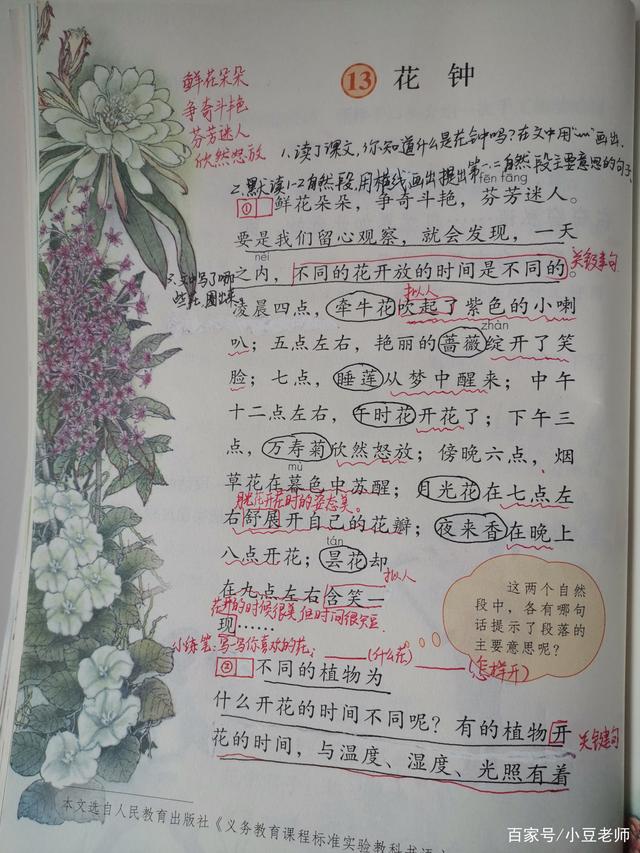 鲜花朵朵
争奇斗艳
芬芳迷人
欣然怒放
13 花钟
1.读了课文,你知道什么是花钟吗?在文中用“﹏”画出.
2.默读1-2自然段,用横线画出提出第一、二自然段主要意思的句子
fēn fāng
① 鲜花朵朵,争奇斗艳,芬芳迷人。
要是我们留心观察,就会发现,一天
nèi
之内,不同的花开放的时间是不同的。
关键句
3.文中写了哪
些花,圈出来
拟人
凌晨四点,牵牛花吹起了紫色的小喇
zhàn
叭;五点左右,艳丽的蔷薇绽开了笑
脸;七点,睡莲从梦中醒来;中午
十二点左右,午时花开花了;下午三
点,万寿菊欣然怒放;傍晚六点,烟
mù
草花在暮色中苏醒;月光花在七点左
月光花开花时的姿态美。
右舒展开自己的花瓣;夜来香在晚上
tán
八点开花;昙花却
拟人
在九点左右含笑一
花开的时候很美但时间很短
现……
小练笔:写一写你喜欢的花。
____(什么花)____(怎样开)
这两个自然
段中,各有哪句
话提示了段落的
主要意思呢?
② 不同的植物为
什么开花的时间不同呢?有的植物开
关键句
花的时间,与温度、湿度、光照有着
本文选自人民教育出版社《义务教育课程标准实验教科书
百家号/小豆老师